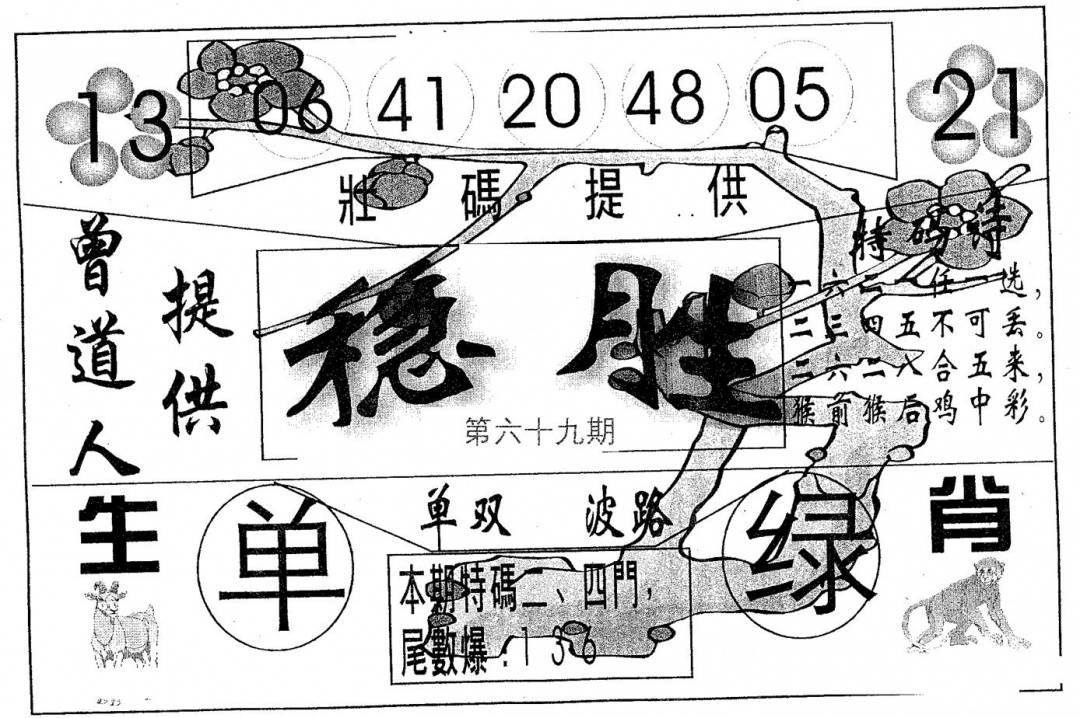 13 06 41 20 48 05 21
壯碼提供
曾道人
提供
稳胜
第六十九期
特码诗
一六二一任一选，
二三四五不可丢。
二六二八合五来，
猴前猴后鸡中彩。
生肖
单双 波路
单
绿
本期特碼二、四門，
尾數爆:136